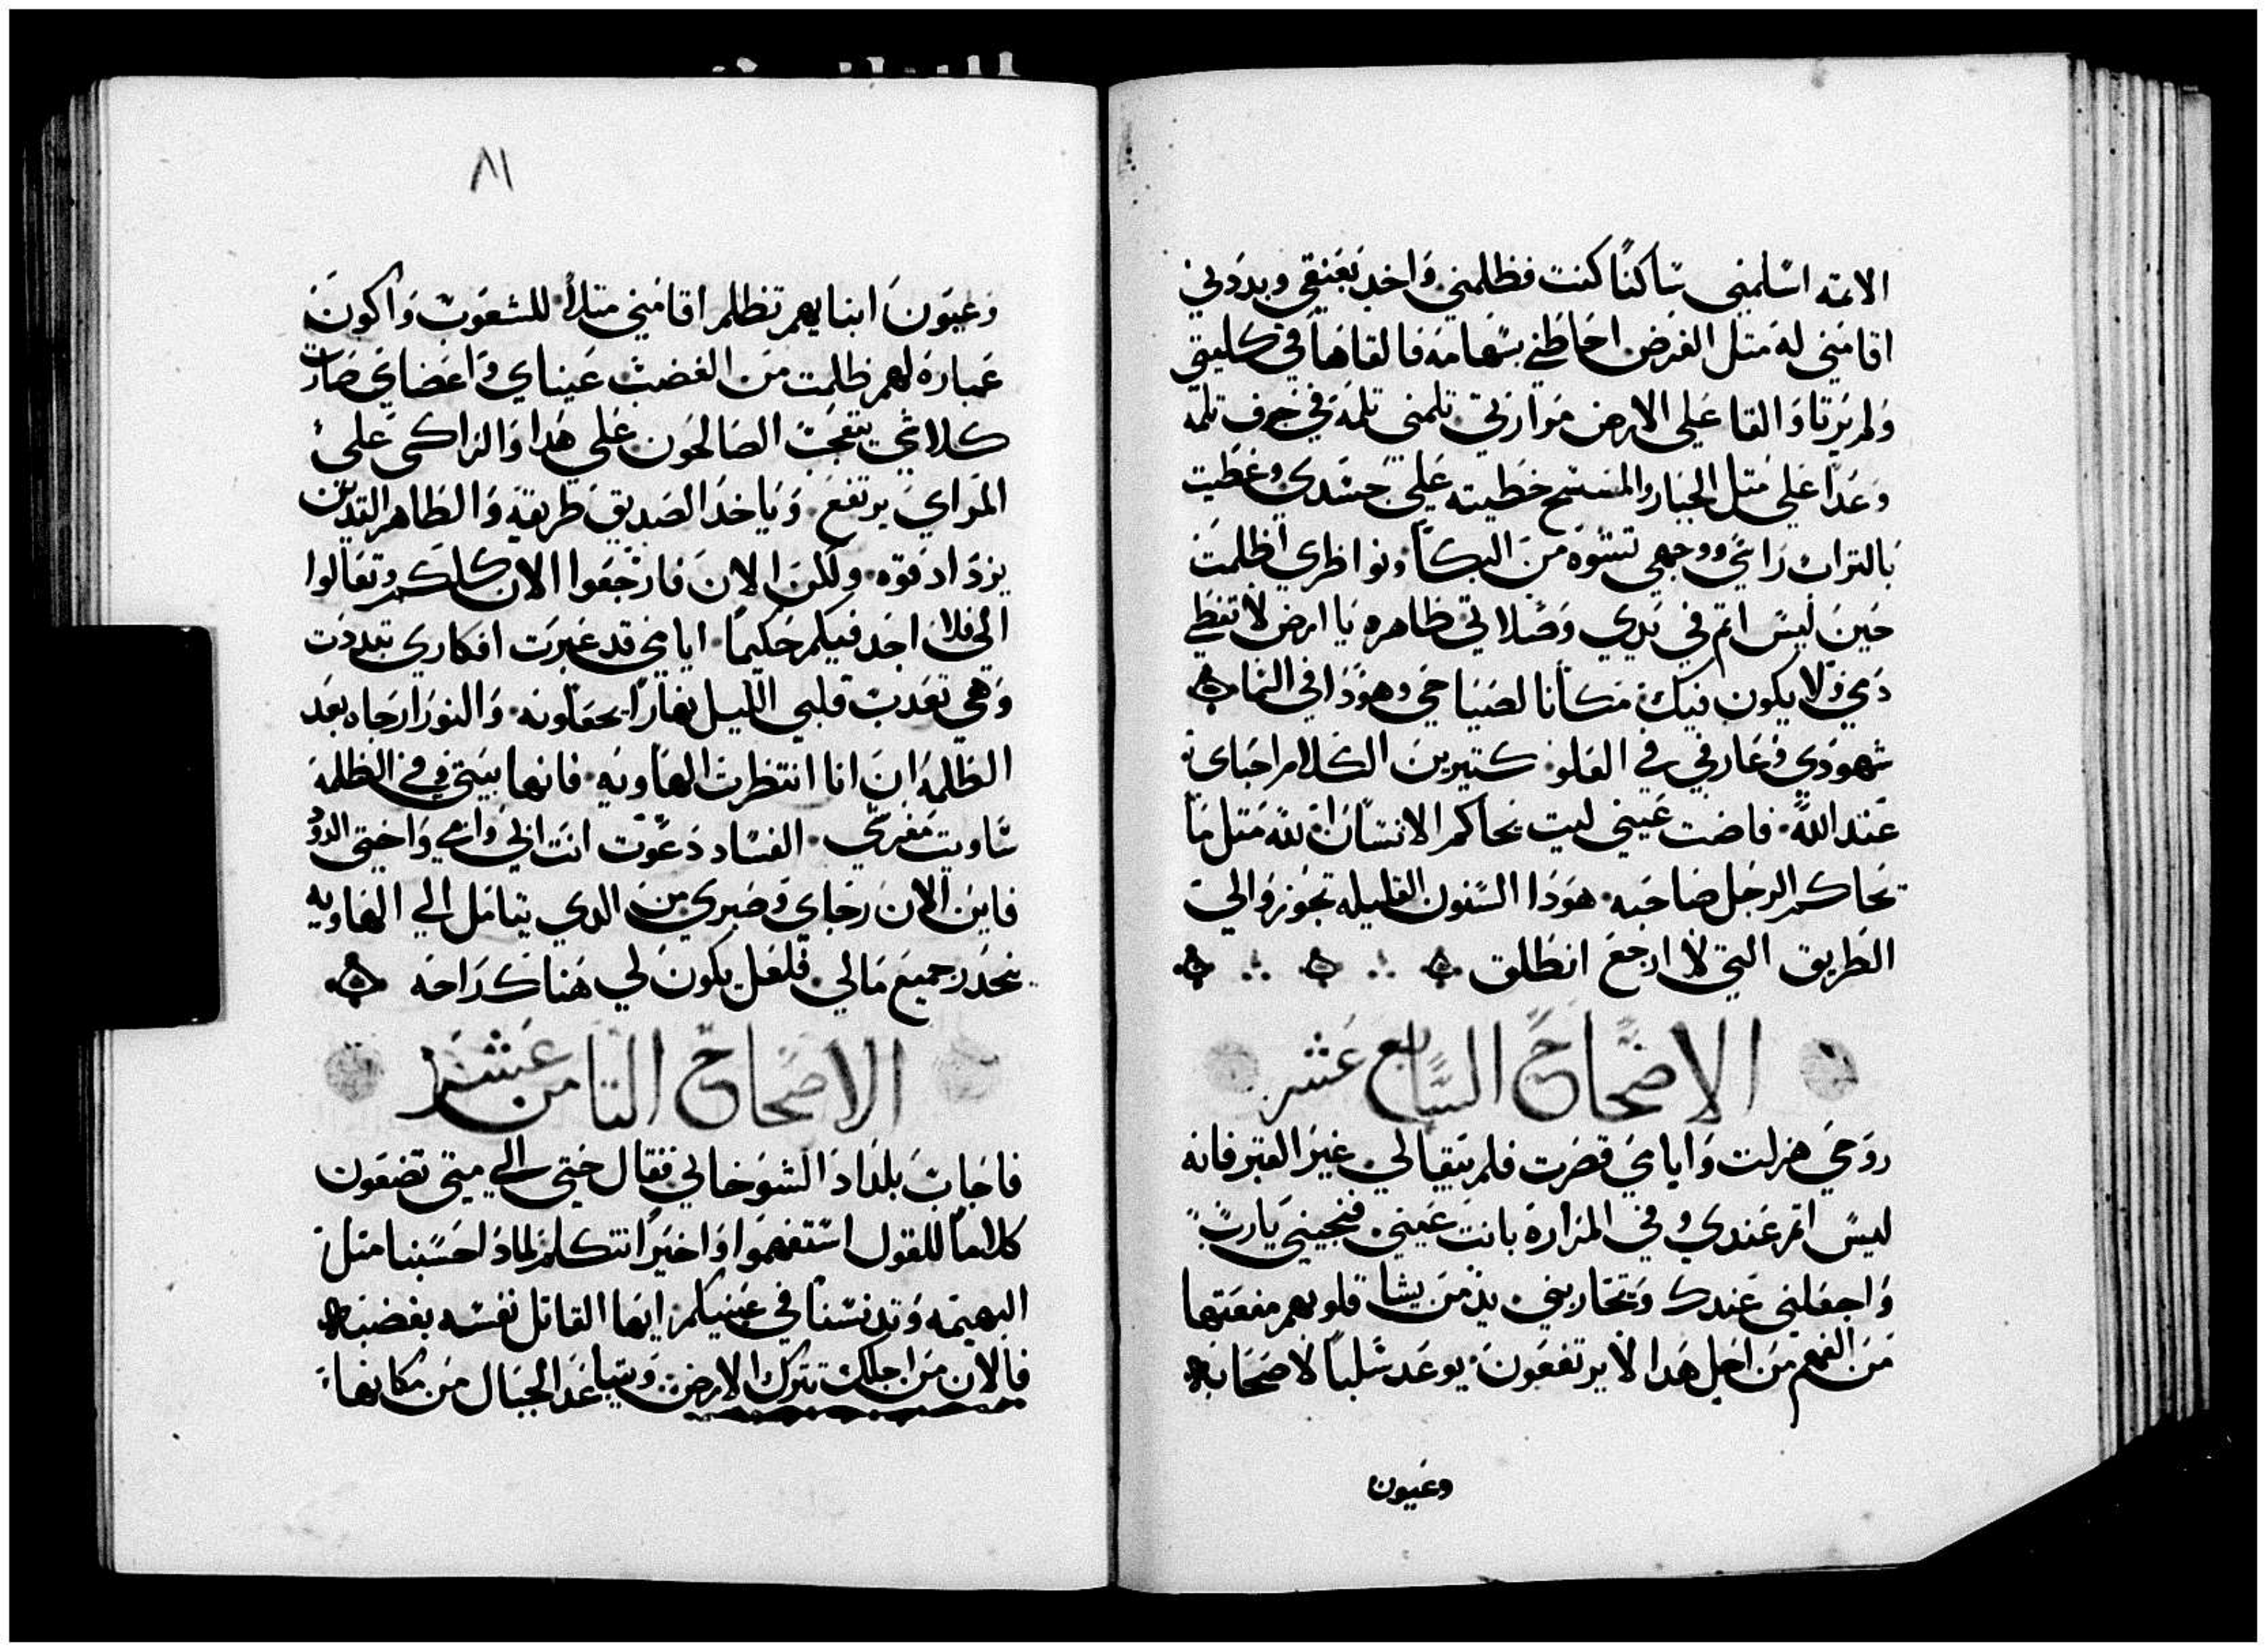 الاتمه اسلمني ساكنًا كنت فظلمني واخد بعنقي وبددني
اقامني له متل الغرض احاطني بسهامه فالقاها في كليتي
ولم يرتا والقا علي الارض مرارتي تلمني تلمة في حرف تلمه
وعدا علي متل الجبار والمسح خطيته علي جسدي وغطيت
بالتراب راسي ووجهي تشوه من البكا ونواظري اظلمت
حين ليس اتم في يدي وصلاتي ظاهره يا ارض لا تغطي
دمي ولا يكون فيك مكانا لصياحي وهودا في السما
شهودي وعارفي في العلو كتيرين الكلام احباي
عند الله فاضت عيني ليت يحاكم الانسان لله متل ما
يحاكم الرجل صاحبه هودا السنون القليله تجوز والي
الطريق التي لا ارجع انطلق
الاصحاح السابع عشر
روحي هزلت وايامي قصرت فلم يتقا لي غير القبر فانه
ليس اتم عندي وفي المرارة باتت عيني فنجيني يا رب
واجعلني عندك ويحاربني يد من يشا قلوبهم منعتها
من الفهم من اجل هدا لا يرتفعون يوعد سلبًا لاصحابه
وعيون
٨١
وعيون ابنايهم تظلم اقامني متلاً للشعوب واكون
عبارة لهم ظلمت من الغضب عيناي واعضاي صارت
كلاشي يتعجب الصالحون علي هدا والزاكي علي
المراي يرتفع وياخد الصديق طريقه والطاهر اليدين
يزداد قوه ولكن الان فارجعوا الان كلكم وتعالوا
الي فلا اجد فيكم حكيمًا ايامي قد عبرت افكاري تبددت
وهي تعدب قلبي الليل نهارًا يجعلونه والنور ارجاه بعد
الظلمة ان انا انتظرت الهاويه فانها بيتي في الظلمة
ساويت مفرشي الفساد دعوت انت ابي وامي واختي الدود
فاين الان رجاي وصبري من الدي يتامل الي الهاويه
ينحدر جميع مالي فلعل يكون لي هناك راحه
الاصحاح التامن عشر
فاجاب بلداد الشوخاني فقال حتي الي متي تضعون
كلامًا للقول استفهموا واخيرًا نتكلم لمادا حسبنا متل
البهيمه وتدنسنا في عينيكم ايها القاتل نفسه بغضبه
فالان من اجلك تترك الارض وتتباعد الجبال من مكانها